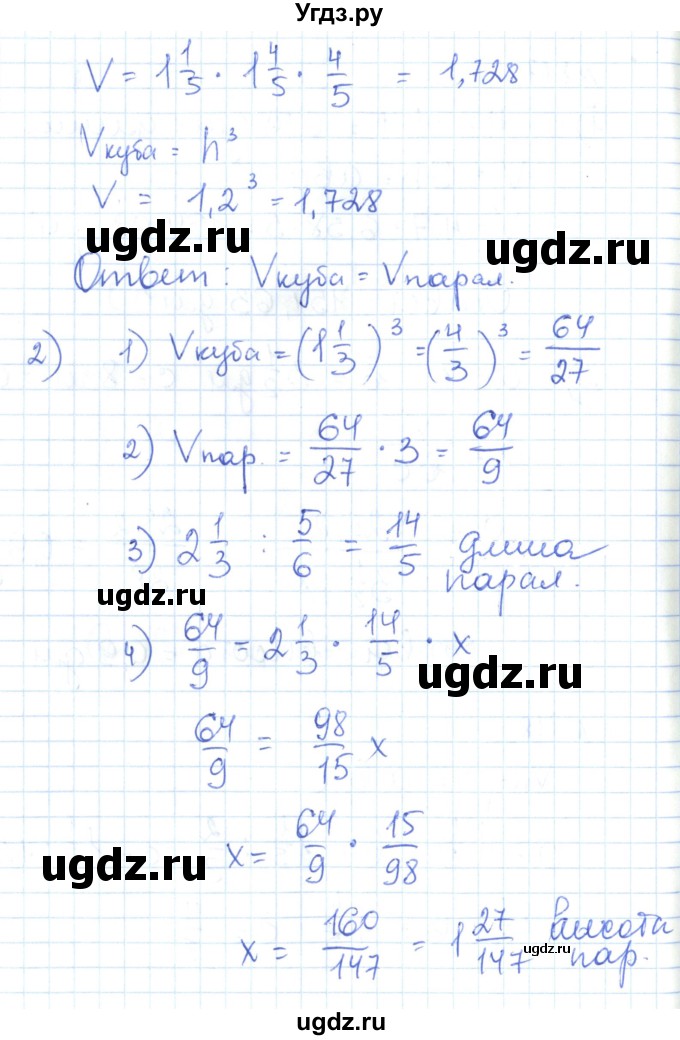 Угдз.ру
V = 1 1/5 · 1 4/5 · 4/5 = 1,728
Vкуба = h³
V = 1,2³ = 1,728
ugdz.ru
ugdz.ru
Ответ: Vкуба = Vпарал.
2) 1) Vкуба = (1 1/3)³ = (4/3)³ = 64/27
2) Vпар. = 64/27 · 3 = 64/9
3) 2 1/3 : 5/6 = 14/5 длина парал.
ugdz.ru
4) 64/9 = 2 1/3 · 14/5 · x
ugdz.ru
64/9 = 98/15 x
x = 64/9 · 15/98
ugdz.ru
x = 160/147 = 1 27/147 высота пар.
ugdz.ru
ugdz.ru